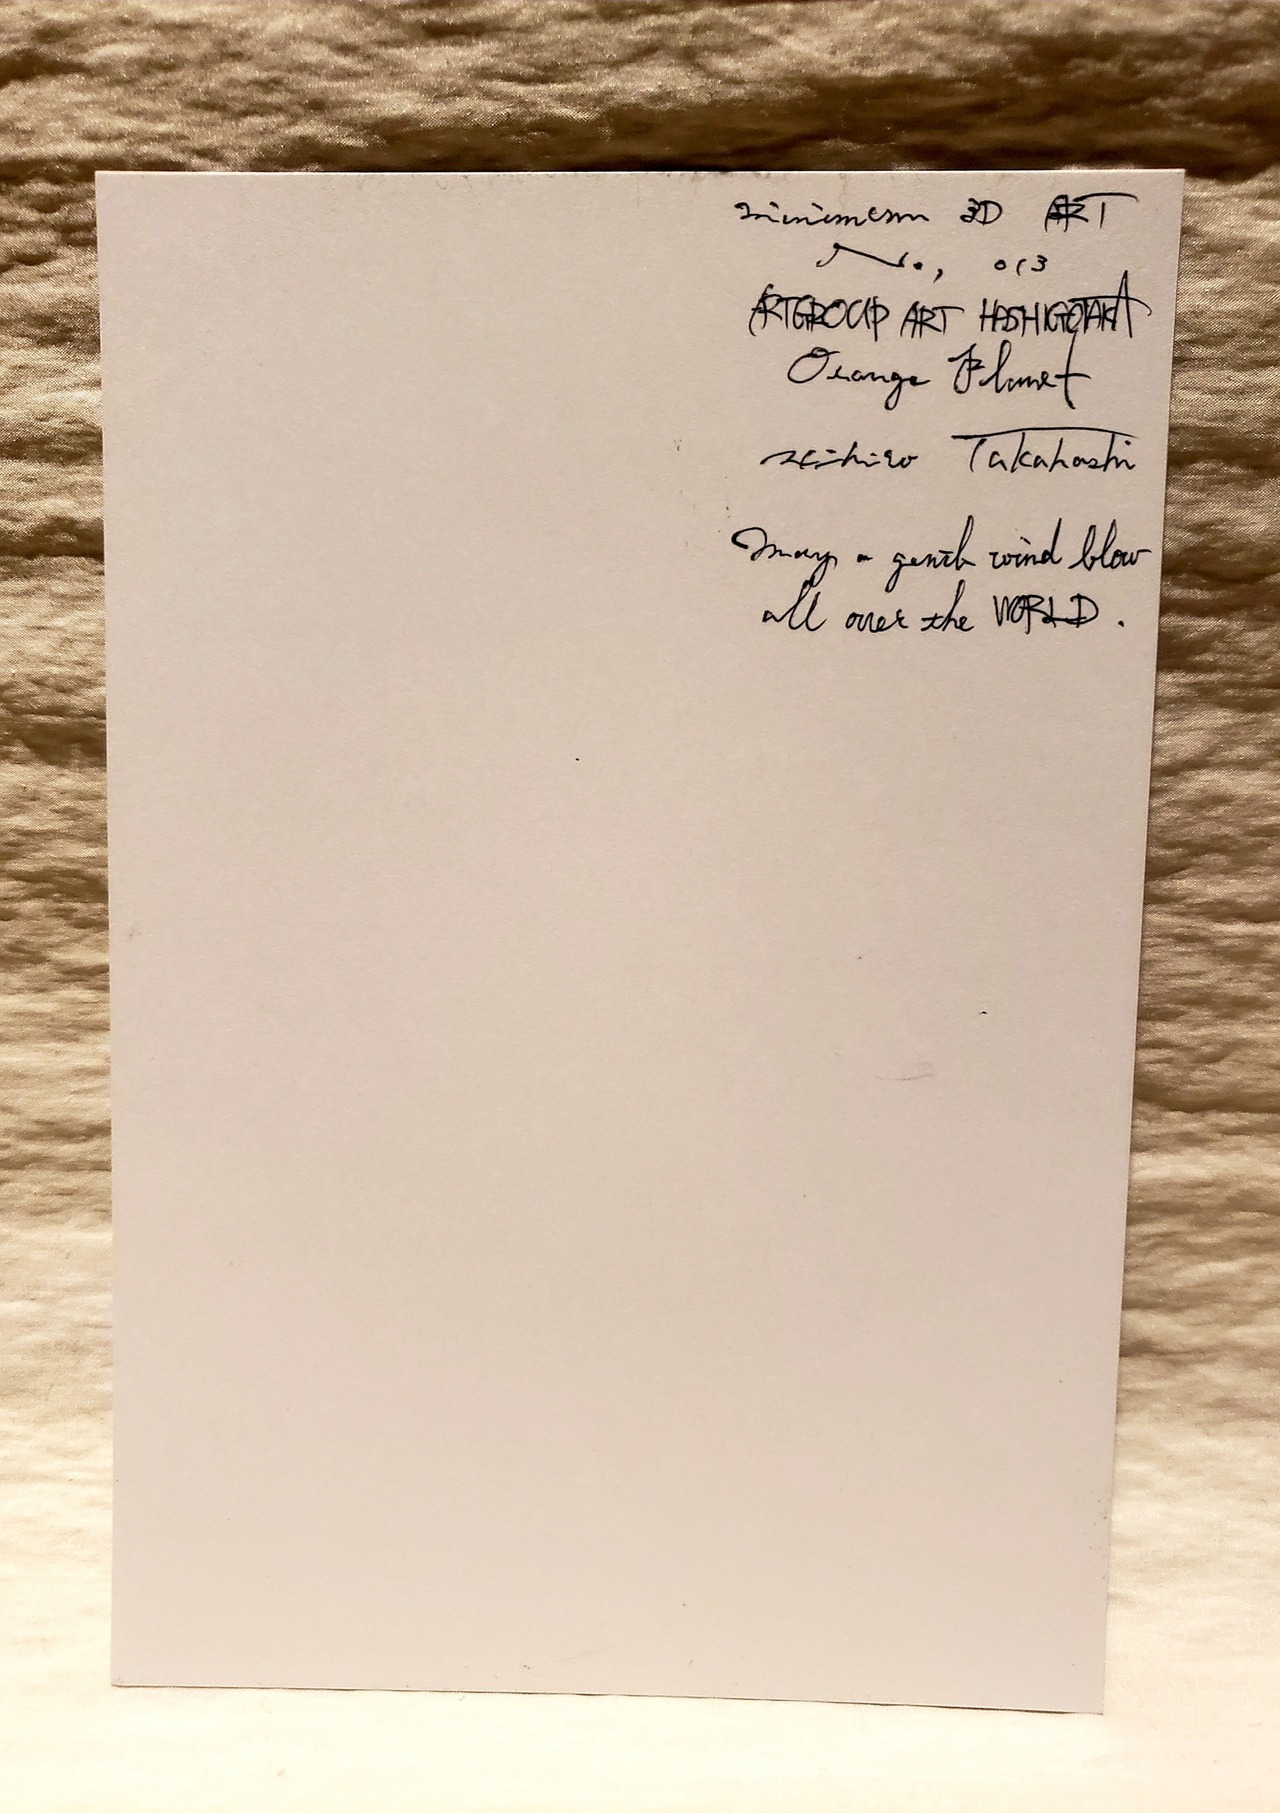 minimum 3D ART
No, 013
ARTGROUP ART HASHIGOTAKA
Orange Planet
Takahashi
May a gentle wind blow
all over the WORLD.